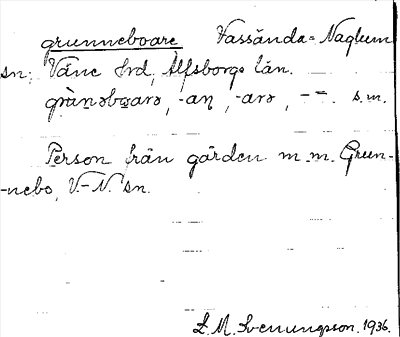 grunneboare Vassända-Naglum
sn; Väne hrd, Älfsborgs län.
grùnəboarə, -aɳ, -arə, -=. s.m.
Person från gården m.m. Grun-
-nebo, V.-N. sn.
L. M. Svenungsson. 1936.